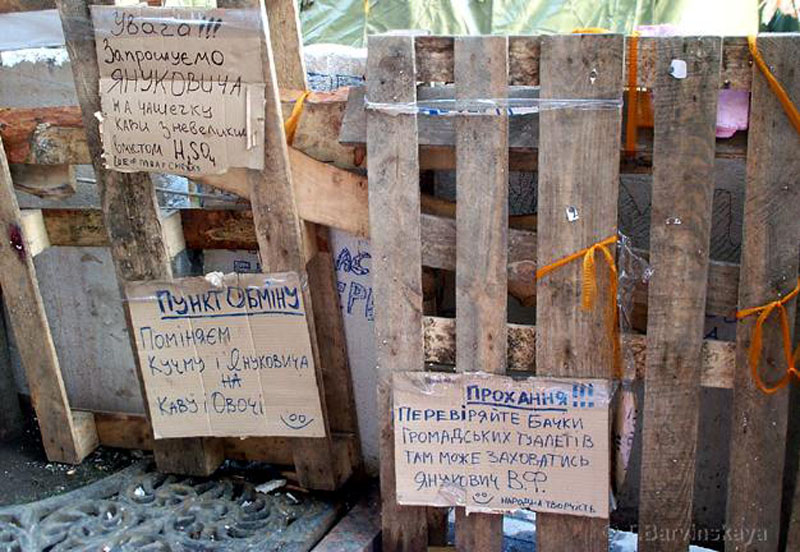 Увага!!!
Запрошуємо
ЯНУКОВИЧА
НА ЧАШЕЧКУ
КАВИ З НЕВЕЛИКИМ
вмістом H₂SO₄
ПУНКТ ОБМІНУ
ПОМІНЯЄМ
КУЧМУ І ЯНУКОВИЧА
НА
КАВУ І ОВОЧІ
ПРОХАННЯ!!!
ПЕРЕВІРЯЙТЕ БАЧКИ
ГРОМАДСЬКИХ ТУАЛЕТІВ
ТАМ МОЖЕ ЗАХОВАТИСЬ
ЯНУКОВИЧ В.Ф.
НАРОДНА ТВОРЧІСТЬ
T.Barvinskaya